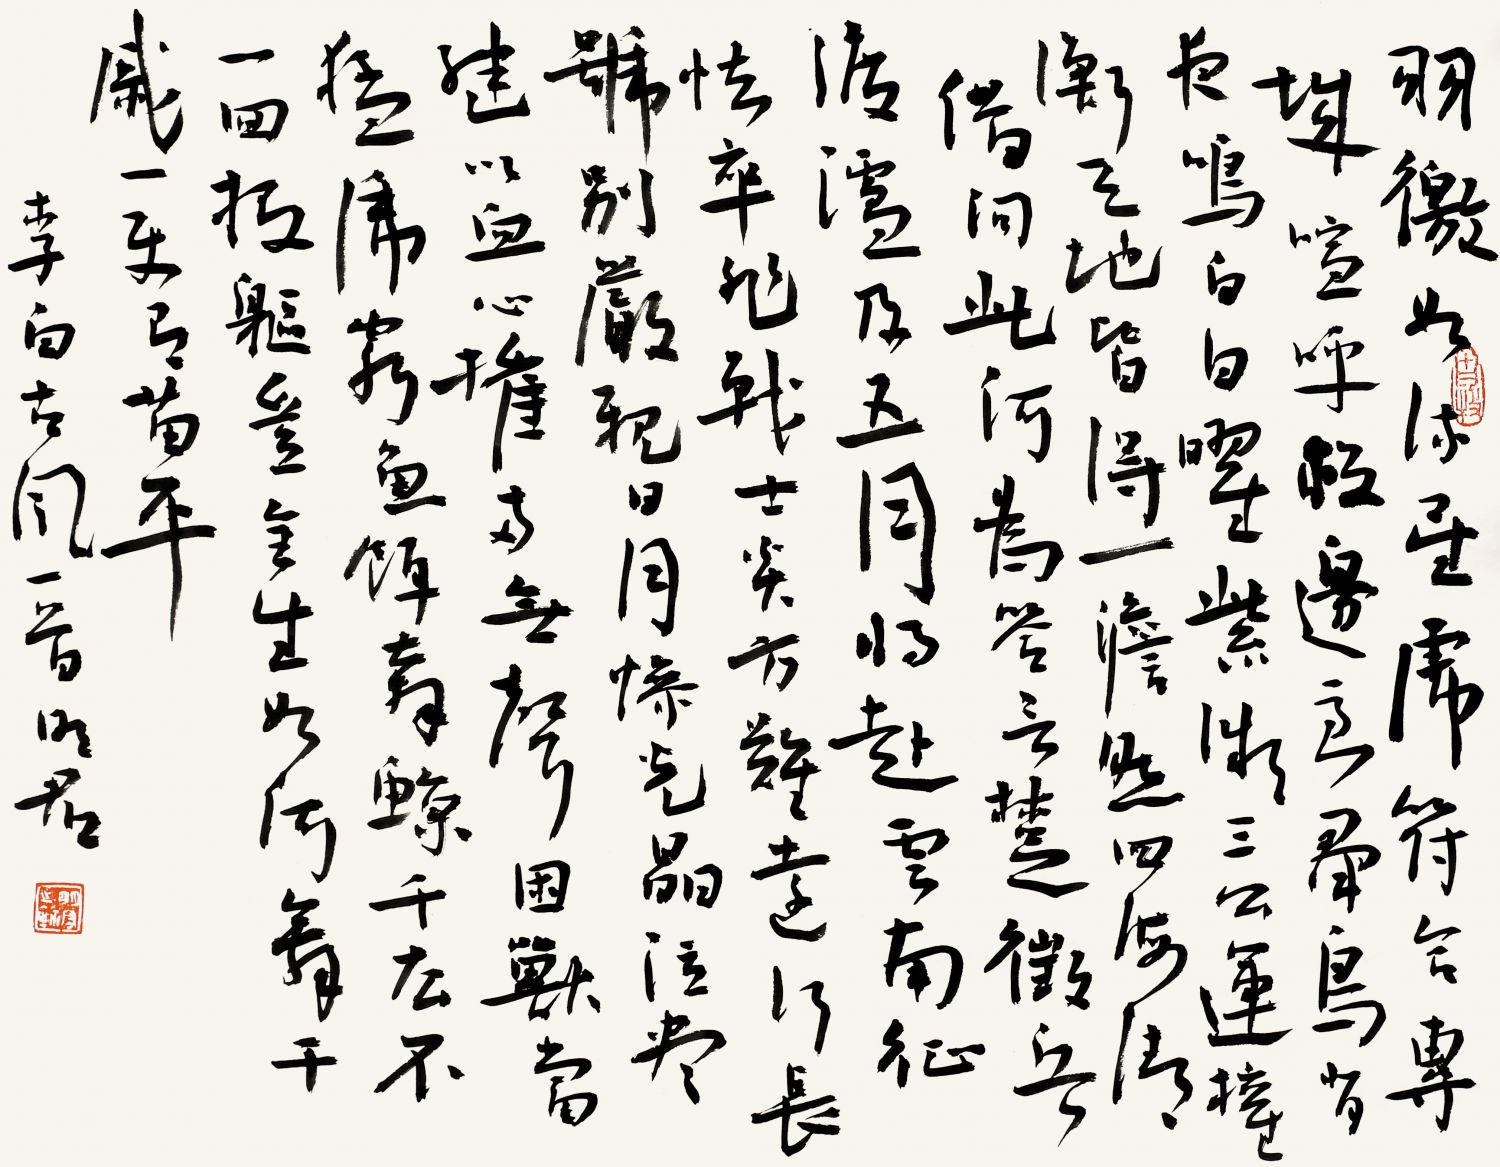 羽檄如流星虎符合專
城喧呼救邊急群鳥皆
夜鳴白日曜紫微三公運權
衡天地皆得一澹然四海清
借問此何為答言楚徵兵
渡瀘及五月將赴雲南征
怯卒非戰士炎方難遠行長
號別嚴親日月慘光晶泣盡
繼以血心摧兩無聲困獸當
猛虎窮魚餌奔鯨千去不
一回投軀豈全生如何舞干
戚一使有苗平
李白古風一首 明君